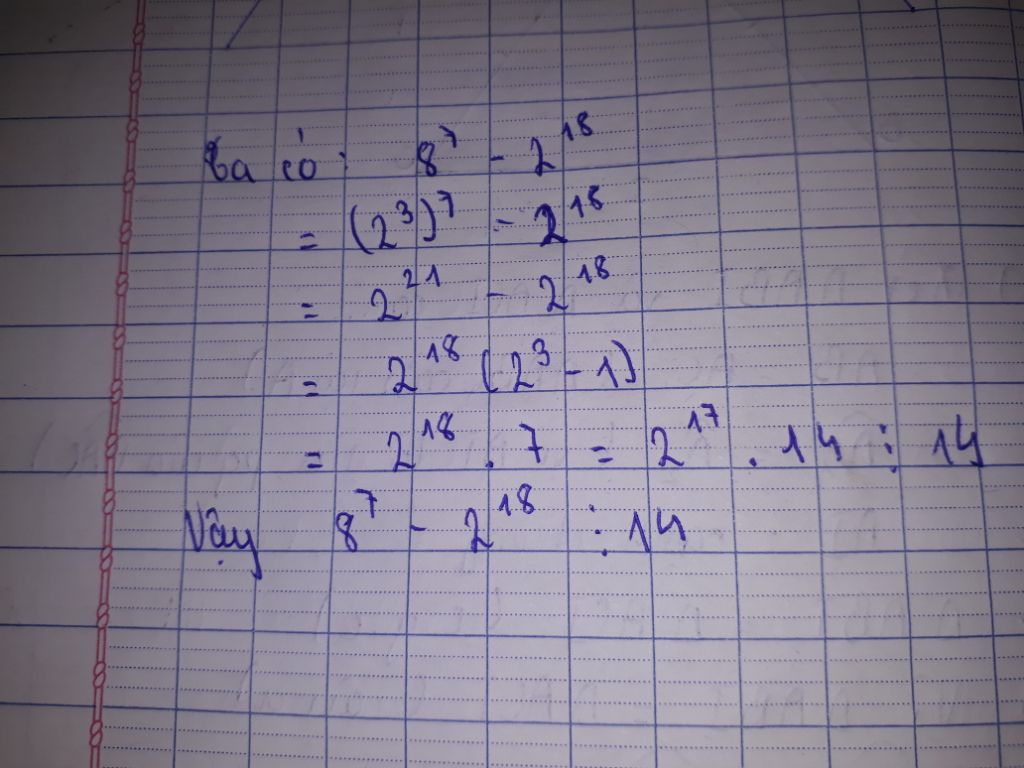 Ta có: 8⁷ - 2¹⁸
= (2³)⁷ - 2¹⁸
= 2²¹ - 2¹⁸
= 2¹⁸ (2³ - 1)
= 2¹⁸ . 7 = 2¹⁷ . 14 ⋮ 14
Vậy 8⁷ - 2¹⁸ ⋮ 14